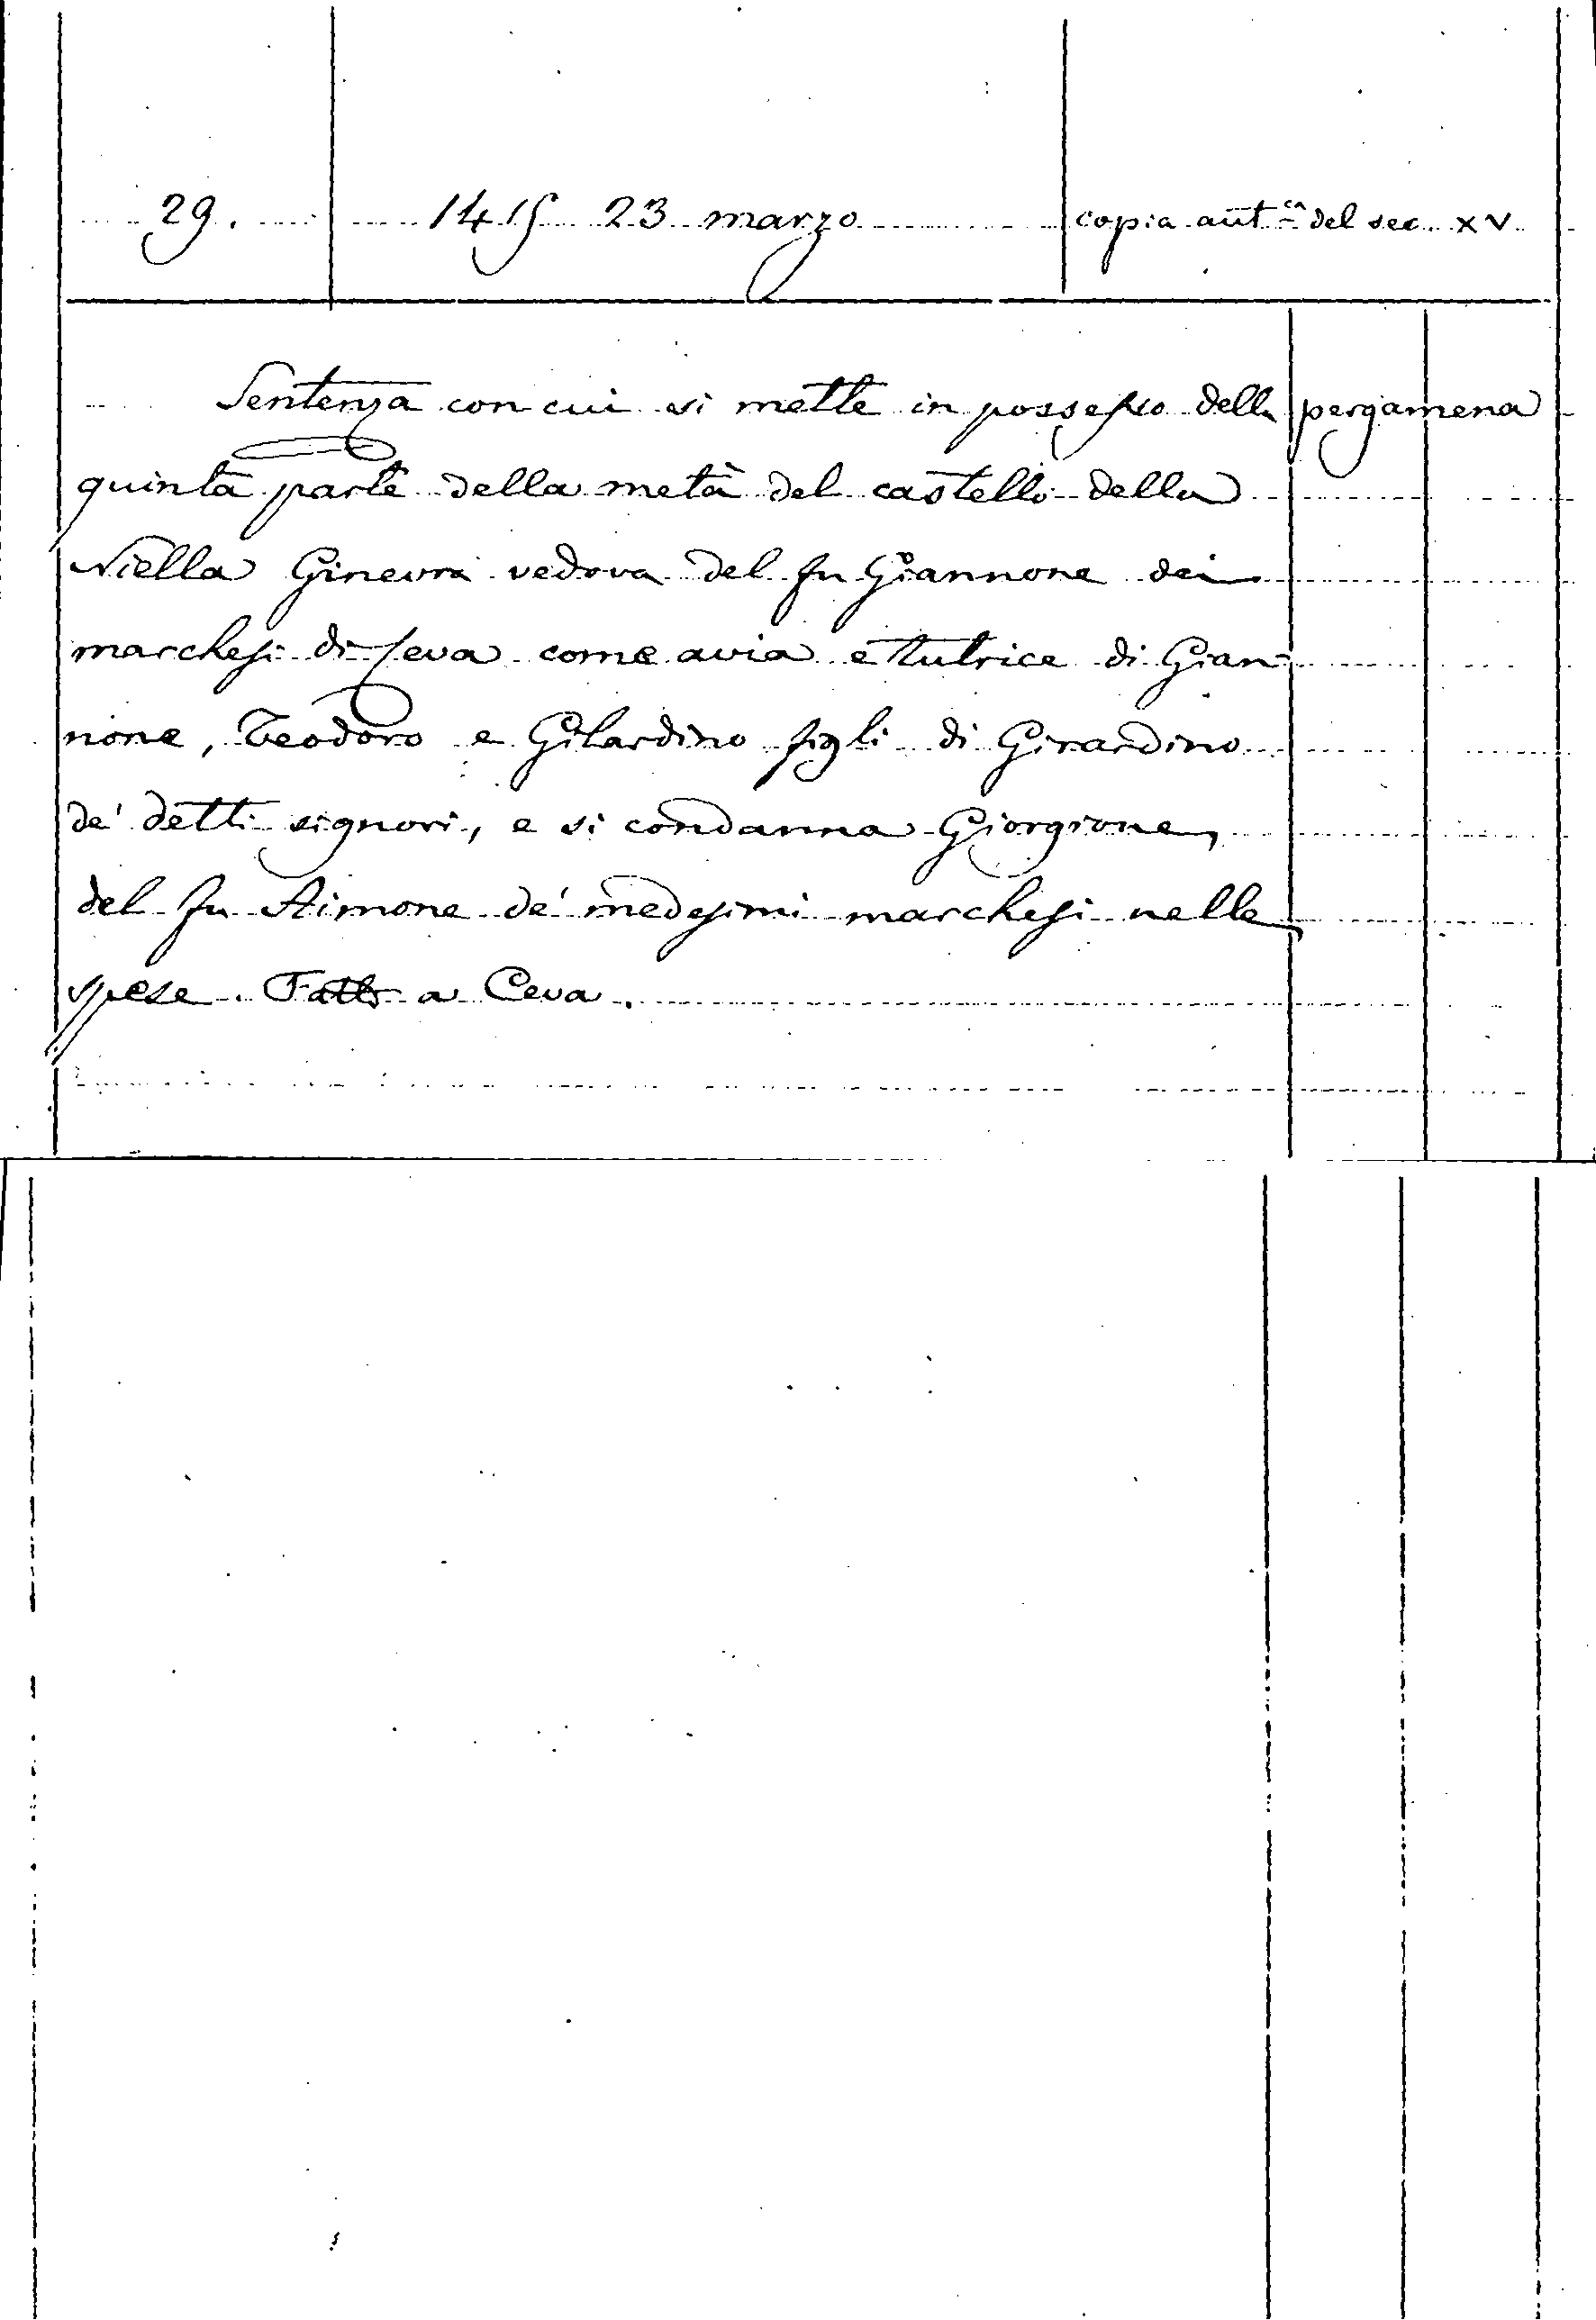 29. 1415 23 marzo copia aut.ca del sec. XV
Sentenza con cui si mette in possesso della pergamena
quinta parte della metà del castello della
Niella Ginevra vedova del fu Giannone dei
marchesi di Ceva come avia e tutrice di Gian
none, Teodoro e Gilardino figli di Girardino
de' detti signori, e si condanna Giorgione,
del fu Aimone de' medesimi marchesi nelle
spese. Fatto a Ceva.